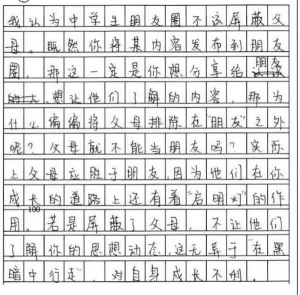 我认为中学生朋友圈不该屏蔽父
母。既然你将某内容发布到朋友
圈，那这一定是你想分享给朋友
想让他们了解的内容，那为
什么偏偏将父母排除在“朋友”之外
呢？父母就不能当朋友吗？实际
上父母应胜于朋友，因为他们在你
成长的道路上还有着“启明灯”的作
100
用。若是屏蔽了父母，不让他们
了解你的思想动态，这无异于“在黑
暗中行走”，对自身成长不利。